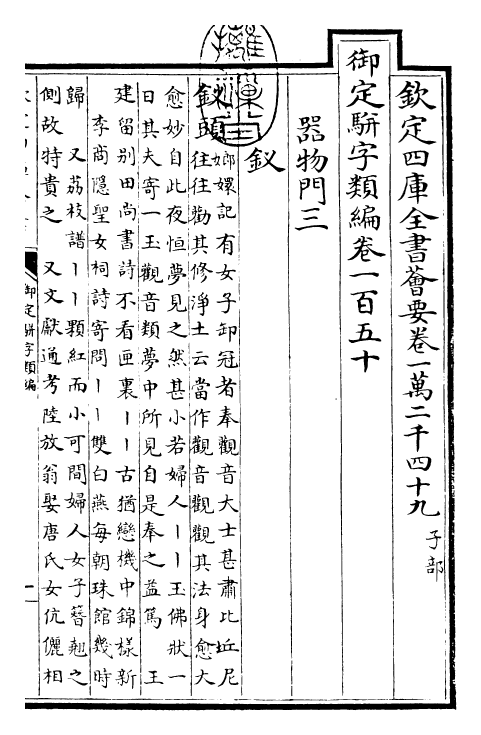 欽定四庫全書薈要卷一萬二千四十九 子部
御定駢字類編卷一百五十
器物門三
釵
釵頭 嫏嬛記有女子卸冠者奉觀音大士甚肅比丘尼
往往勸其修淨土云當作觀音觀觀其法身愈大
愈妙自此夜恒夢見之然甚小若婦人丨丨玉佛狀一
日其夫寄一玉觀音類夢中所見自是奉之益篤 王
建留别田尚書詩不看匣裏丨丨古猶戀機中錦樣新
李商隱聖女祠詩寄問丨丨雙白燕每朝珠館幾時
歸 又荔枝譜丨丨顆紅而小可間婦人女子簪翹之
側故特貴之 又文獻通考陸放翁娶唐氏女伉儷相
御定駢字類編
一